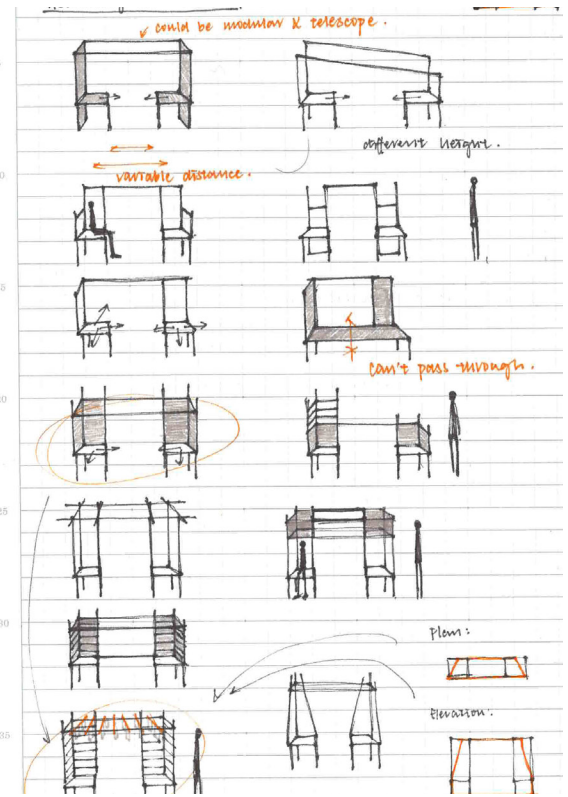 could be modular & telescope.
different height.
variable distance.
can't pass through.
Plan:
Elevation: